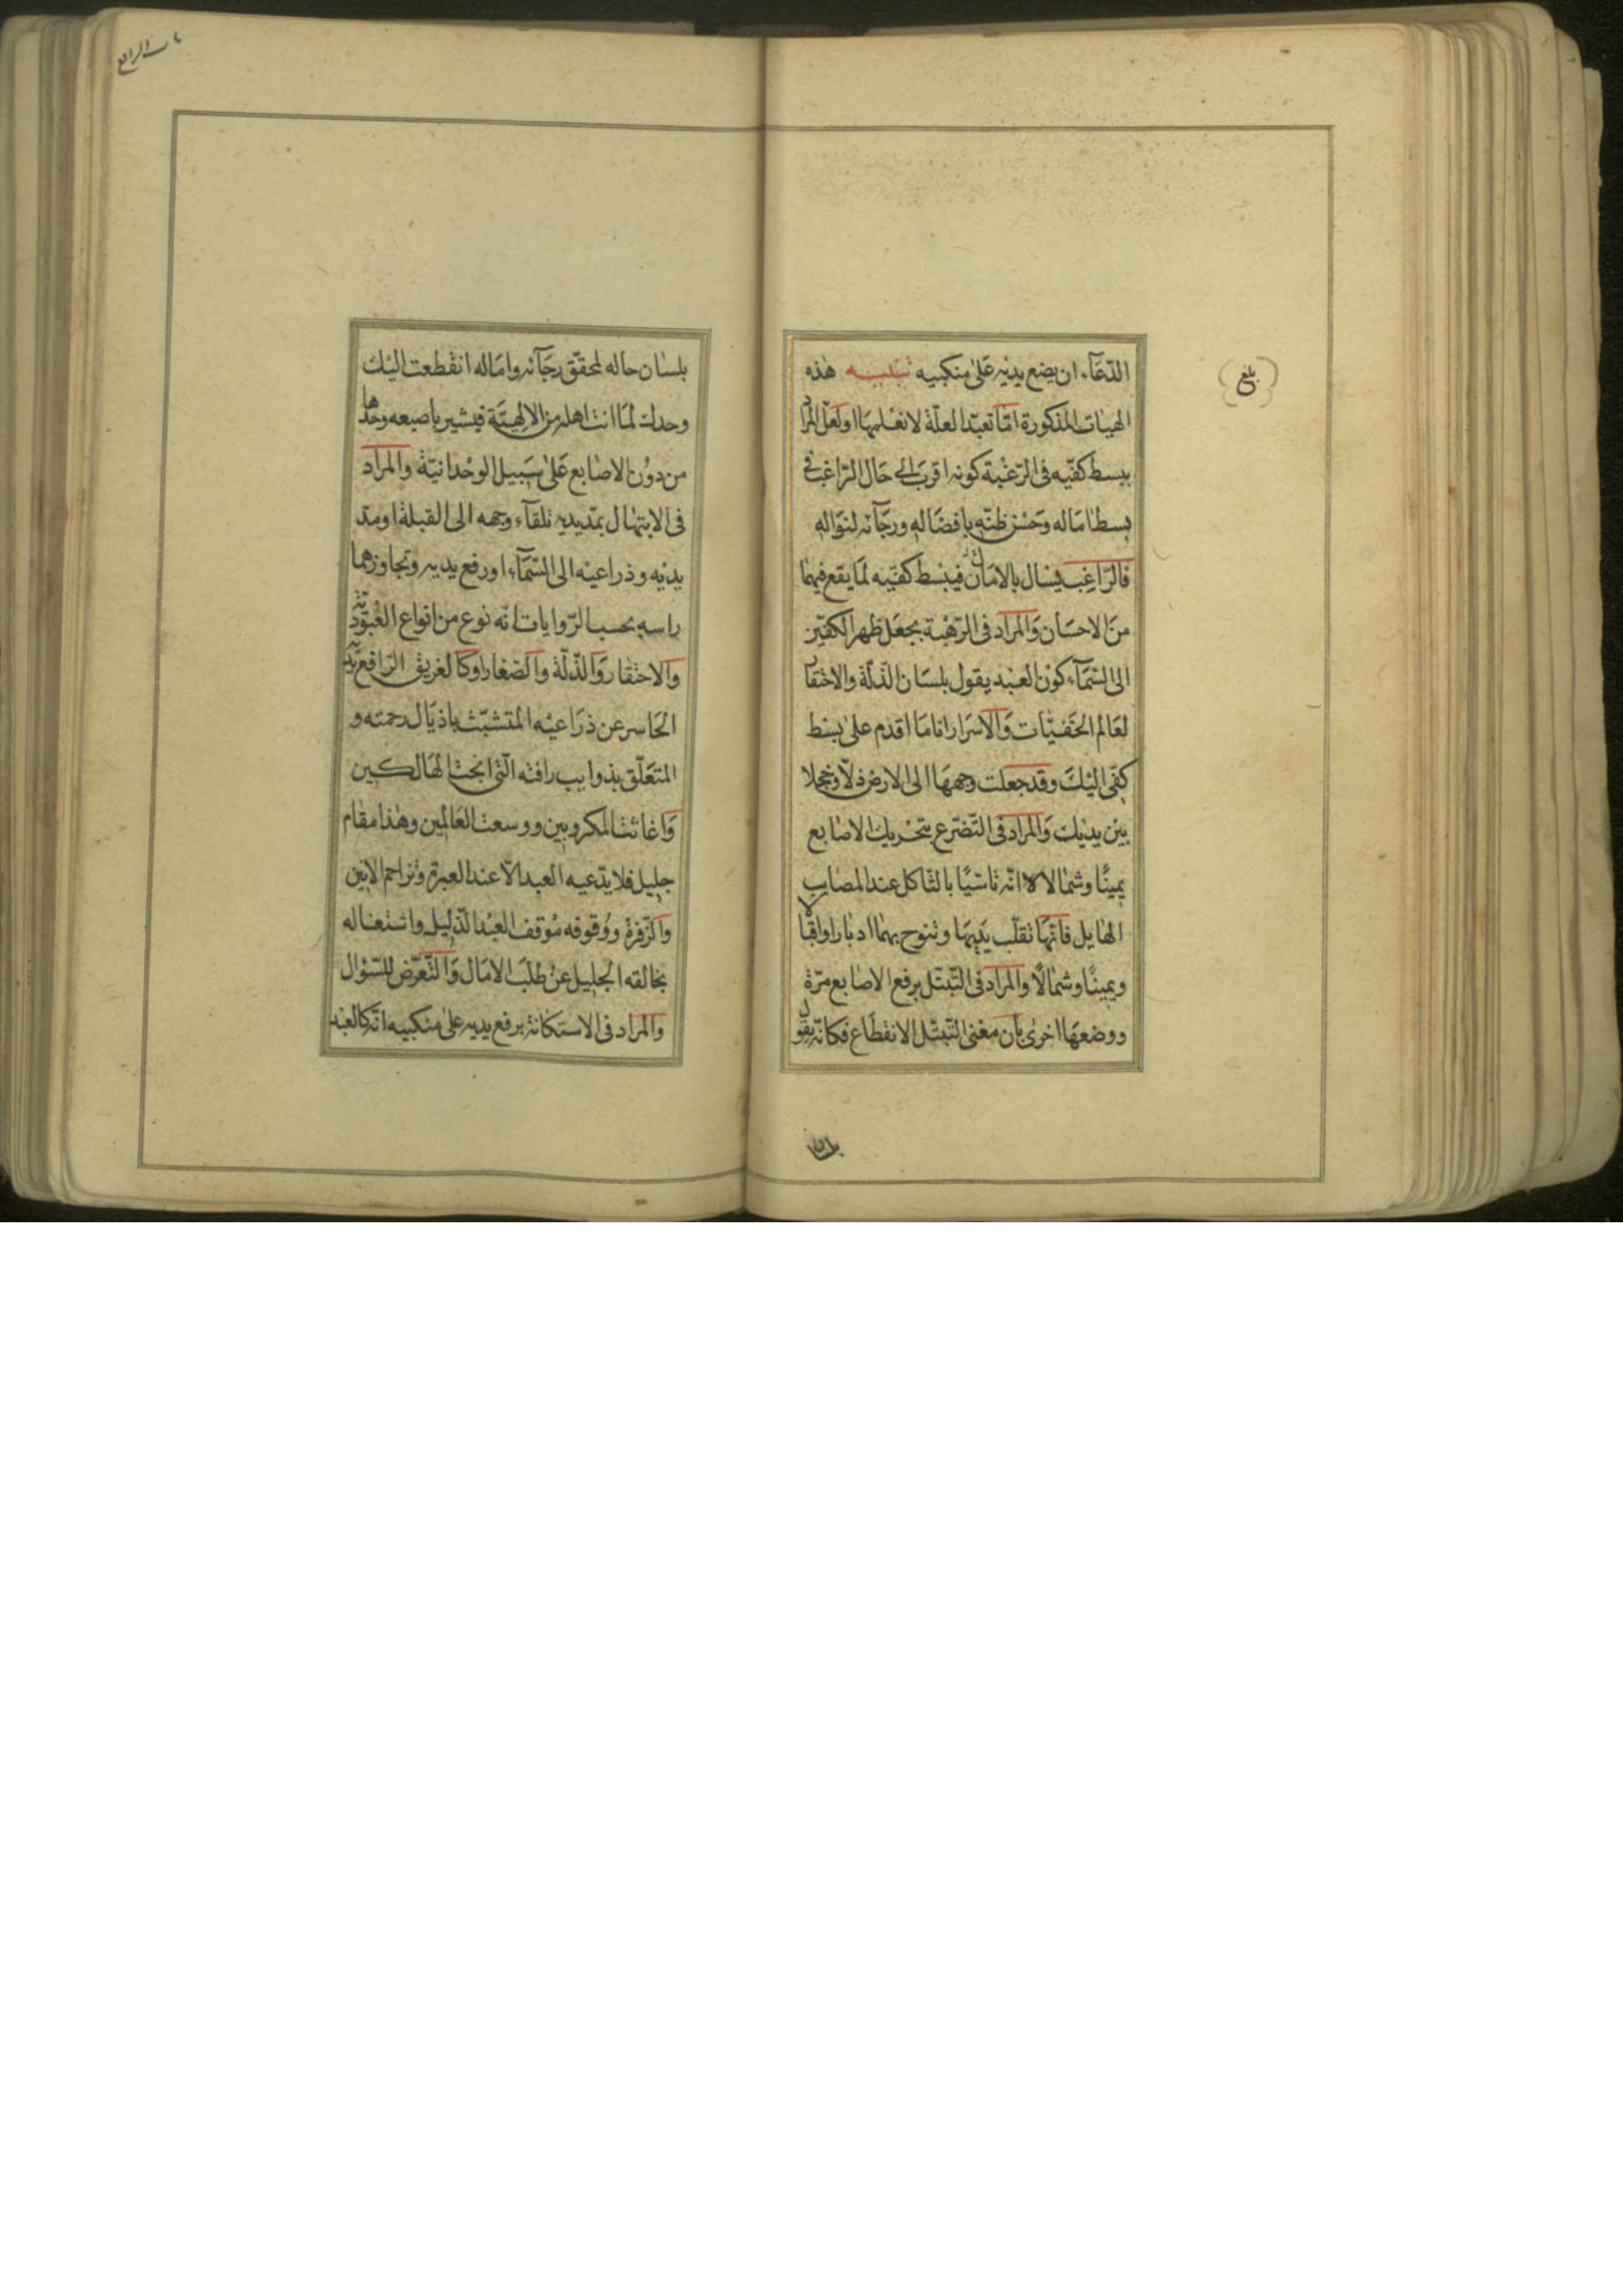 الدّعَآء ان يضع يديه عَلىٰ منكبيه تنبيه هٰذه
الهيئات المذكورة امّا تعبّدا لعلّة لا نعلمها او لعَلّ المراد
ببسط كفّيه فى الرّغبة كونه اقرب الى حَال الرّاغب فى
بسط اماله وحسْن ظنّه بافضاله ورجَآئه لنواله
فالرّاغب يسال بالامان فيبسط كفّيه لما يقع فيهما
منَ الاحسَان وَالمراد فى الرّهْبة بجعَل ظهر الكفّين
الى السّمَآء كوْن العبْد يقول بلسَان الذلّة والاحتقار
لعَالم الخفيّات وَالاسرَار انا ما اقدم على بسْط
كفّى اليْكَ وقد جعلت وجههَا الى الارض ذلّا وخجلا
بين يديْك وَالمراد فى التّضرع بتحْريك الاصٰابع
يمينًا وشمالا انّه تاسّيًا بالثاكل عند المصاب
الهٰايل فانّهَا تقلّب يَديهَا وتنوح بهمٰا ادبٰارا واقبالا
ويمينًا وشمٰالًا والمراد فى التّبتّل برفع الاصٰابع مرّة
ووضعهَا اخرى بأن معْنى التّبتّل الانقطَاع فكانّه يقول
بلسٰان حاله لمحقّق رجَآئه وامَاله انقْطعت اليْك
وحدك لمَا انت اهله من الالهيّة فيشير باصبعه وحدها
من دوْن الاصٰابع عَلىٰ سَبيل الوحْدانيّة والمرَاد
فى الابتهٰال بمدّ يديه تلقآء وجهه الى القبلة او مدّ
يديْه وذراعيْه الى السّمَآء او رفع يديه وتجاوزهما
راسه بحسب الرّوايات انّه نوع من انواع العُبوديّة
وَالاحتقار وَالذّلّة وَالصّغار او كالغريق الرّافع يديه
الحَاسر عن ذرَاعيْه المتشبّث باذيَال رحمته و
المتعَلّق بذوايب رافته الّتى انجت الهَالكين
وَاغاثت المكروبين ووسعت العَالمين وهٰذا مقام
جليل فلا يدّعيه العبد الّا عند العبرة وتزاحم الانين
وَالزّفرة ووُقوفه مَوْقف العبْد الذّليل واشتغاله
بخالقه الجليل عن طلَب الامَال وَالتّعرّض للسّؤال
والمراد فى الاستكانة برفع يديه عَلى منكبيه انّه كالعبْد
بلغ
بلسان